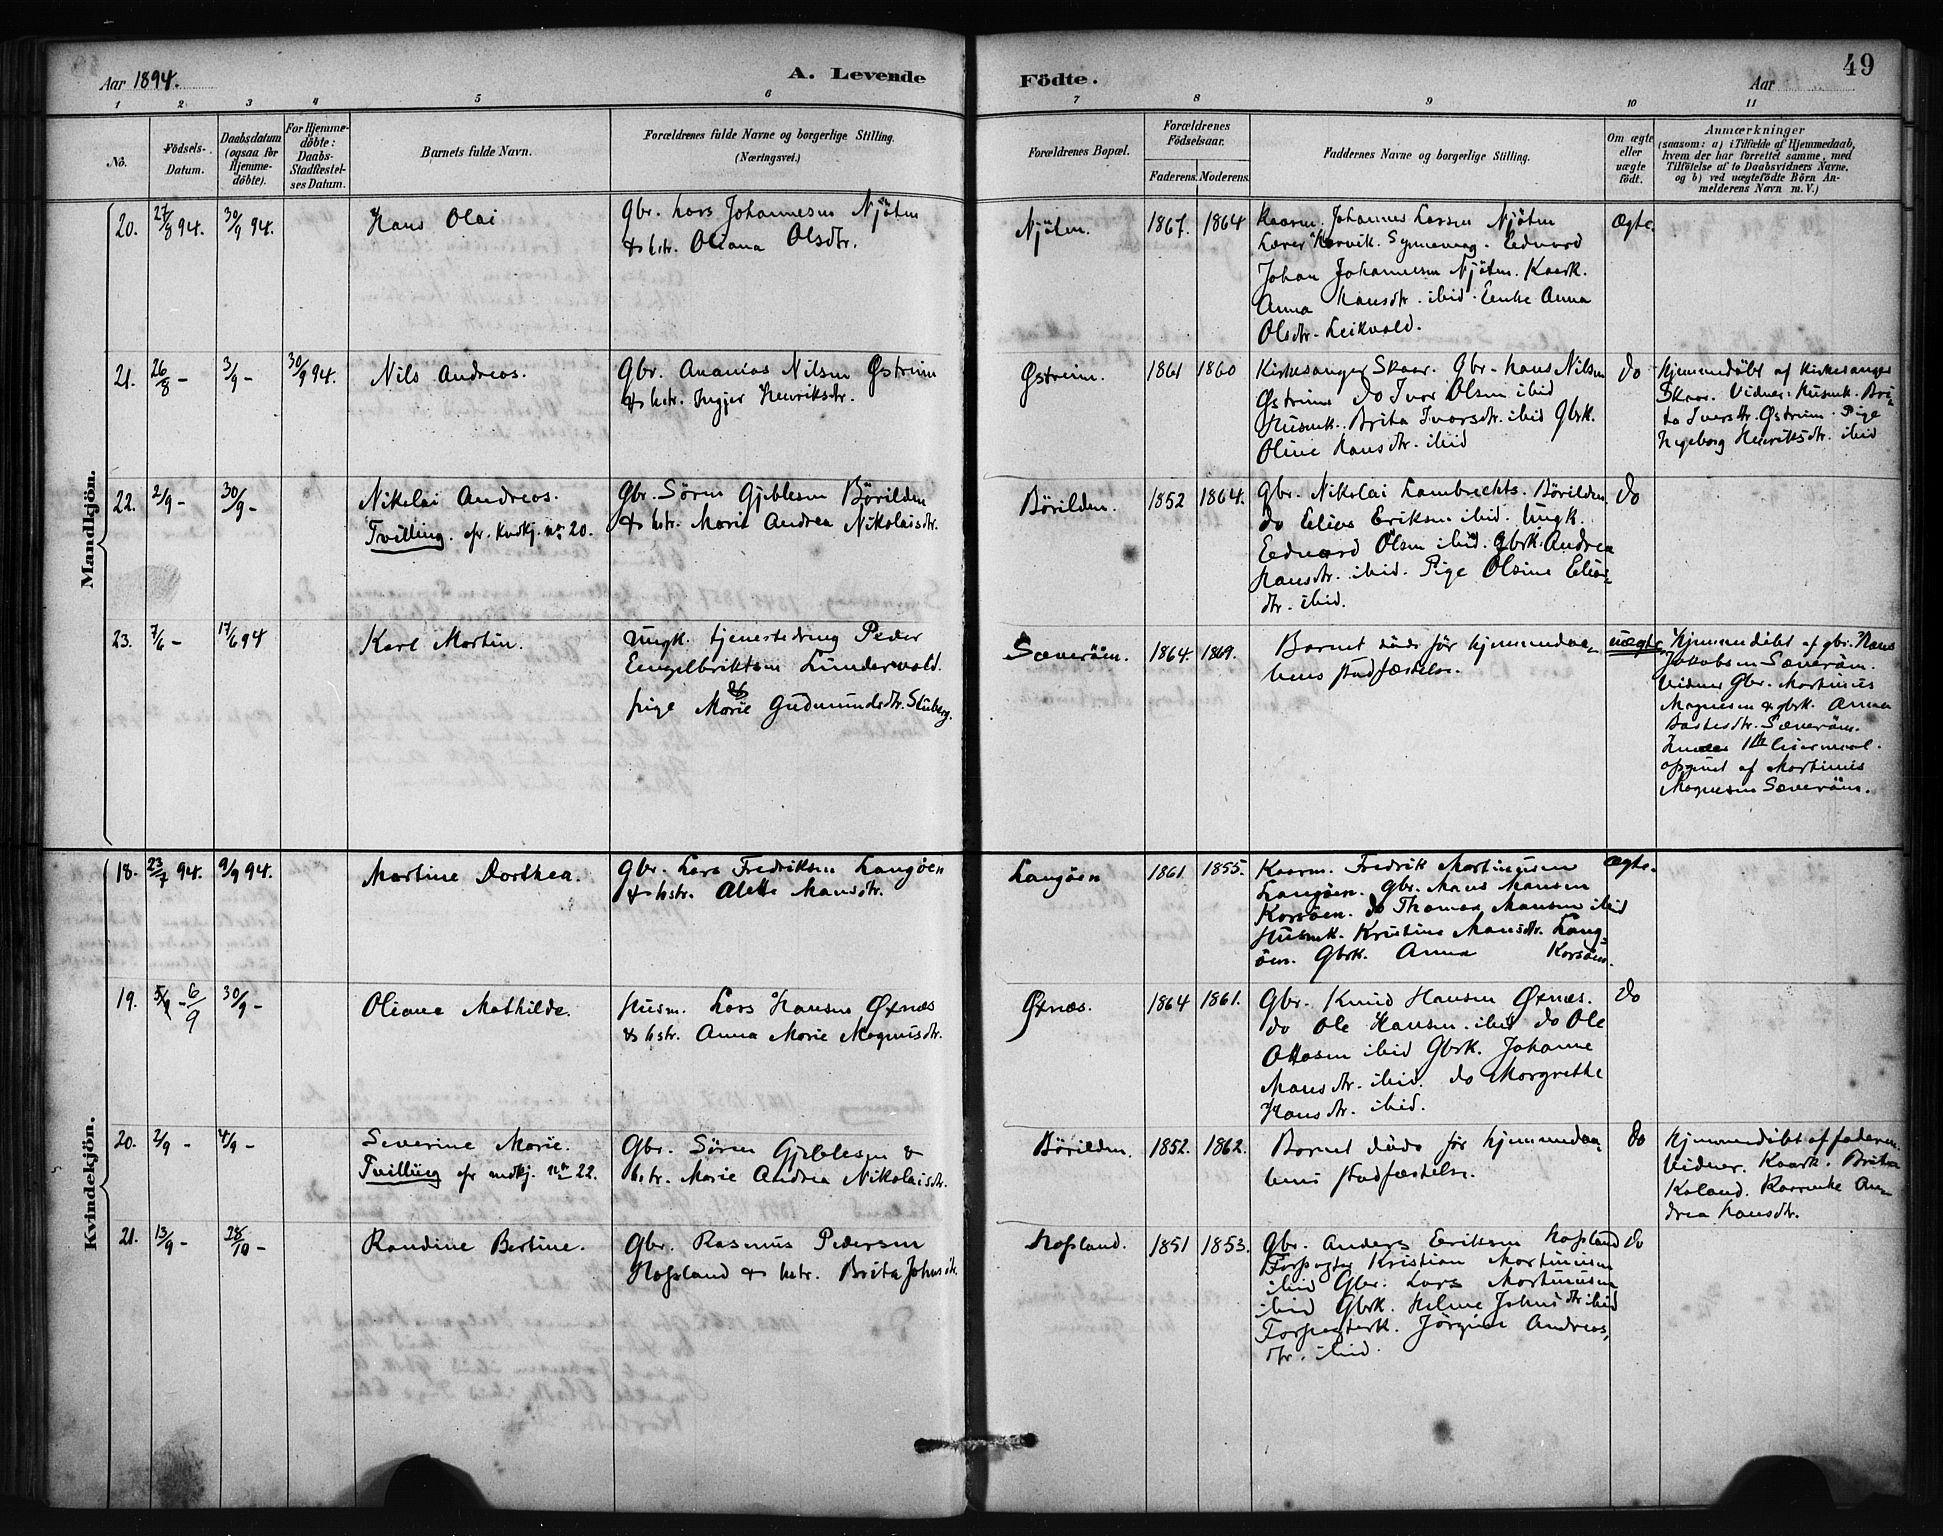 49
Aar 1894.
A. Levende Födte.
Aar
1 2 3 4 5 6 7 8 9 10 11
No.
Födsels-
Datum.
Daabsdatum
(ogsaa for
Hjemme-
döbte).
For Hjemme-
döbte:
Daabs-
Stadfæstel-
ses Datum.
Barnets fulde Navn.
Forældrenes fulde Navne og borgerlige Stilling.
(Næringsvei.)
Forældrenes Bopæl.
Forældrenes
Födselsaar.
Faderens. Moderens.
Faddernes Navne og borgerlige Stilling.
Om ægte
eller
uægte
födt.
Anmærkninger
(saasom: a) i Tilfælde af Hjemmedaab,
hvem der har forrettet samme, med
Tilföielse af to Daabsvidners Navne,
og b) ved uægtefödte Börn An-
melderens Navn m. V.)
Mandkjön.
20. 27/8 94. 30/9 94.
Hans Olai
Gbr. Lars Johannesen Njöten
& hstr. Oliana Olsdtr.
Njöten.
1867. 1864
Kaarm. Johannes Larsen Njöten
Lærer Korvik. Synnevaag. Edvard
Johan Johannesen Njöten. Kaark.
Anna Hansdtr. ibid. Enke Anna
Olsdtr. Leikvold.
Ægte.
21. 26/8 - 3/9 - 30/9 94.
Nils Andreas.
Gbr. Ananias Nilsen Østreim
& hstr. Ingjer Henriksdtr.
Østreim.
1861 1860
Kirkesanger Skaar. Gbr. Hans Nilsen
Østreim do Ivar Olsen ibid
Husmk. Brita Ivarsdtr. ibid Gbrk.
Oline Hansdtr. ibid
do
Hjemmedöbt af Kirkesanger
Skaar. Vidner: Husmk. Bri-
ta Iversdtr. Østreim. Pige
Ingeborg Henriksdtr. ibid
22. 2/9 - 30/9 -
Nikolai Andreas.
Tvilling. cfr. Kvdkj. nr 20.
Gbr. Sören Gjeblesen Börilden
& hstr. Marie Andrea Nikolaisdtr.
Börilden.
1852 1864.
Gbr. Nikolai Lambrechts. Börilden.
do Elias Eriksen ibid. Ungk.
Eduard Olsen ibid. Gbrk. Andrea
Hansdtr. ibid. Pige Olsine Elias-
dtr. ibid.
do
23. 7/6 - 17/6 94
Karl Martin.
Ungk. tjenestedreng Peder
Engelbriktsen Lundervold.
&
pige Marie Gudmundsdtr. Stuberg.
Sæveröen.
1864. 1869.
Barnet döde för hjemmedaa-
bens stadfæstelse.
uægte
Hjemmedöbt af gbr. Hans
Jakobsen Sæveröen.
Vidner Gbr. Martinus
Magnesen & gbrk. Anna
Bastesdtr. Sæveröen.
1ste leiermaal.
opgivet af Martinus
Magnesen Sæveröen.
Kvindekjön.
18. 23/7 94. 9/9 94.
Martine Dorthea.
Gbr. Lars Fredriksen Langöen
& hstr. Alette Mansdtr.
Langöen
1861 1855.
Kaarm. Fredrik Martinusen
Langöen. Gbr. Mans Mansen
Korsöen. do Thomas Mansen ibid
Husmk. Kristine Mansdtr. Lang-
öen. Gbrk. Anna Korsöen.
Ægte.
19. 5/9 - 6/9 30/9 -
Oliane Mathilde.
Husm. Lars Hansen Øxnæs
& hstr. Anna Marie Magnusdtr.
Øxnæs.
1864 1861.
Gbr. Knud Hansen Øxnæs.
do Ole Hansen. ibid do Ole
Ottosen ibid Gbrk. Johanne
Mansdtr. ibid. do Margrethe
Hansdtr. ibid.
do
20. 2/9 - 4/9 -
Severine Marie.
Tvilling cfr mdkj. nr 22.
Gbr. Sören Gjeblesen &
hstr. Marie Andrea Nikolaisdtr.
Börilden.
1852. 1862.
Barnet döde för hjemmedaa-
bens stadfæstelse.
do
Hjemmedöbt af faderen.
Vidner. Kaark. Britha
Koland. Kaarenke An-
drea Hansdtr.
21. 13/9 - 28/10 -
Randine Bertine.
Gbr. Rasmus Pedersen
Hopland & hstr. Brita Johnsdtr.
Hopland.
1851 1853.
Gbr. Anders Eriksen Hopland
Forpagter Kristian Martinusen
ibid Gbr. Lars Martinusen
ibid Gbrk. Helene Johnsdtr ibid
Forpagterk. Jörgine Andreas-
dtr. ibid.
do